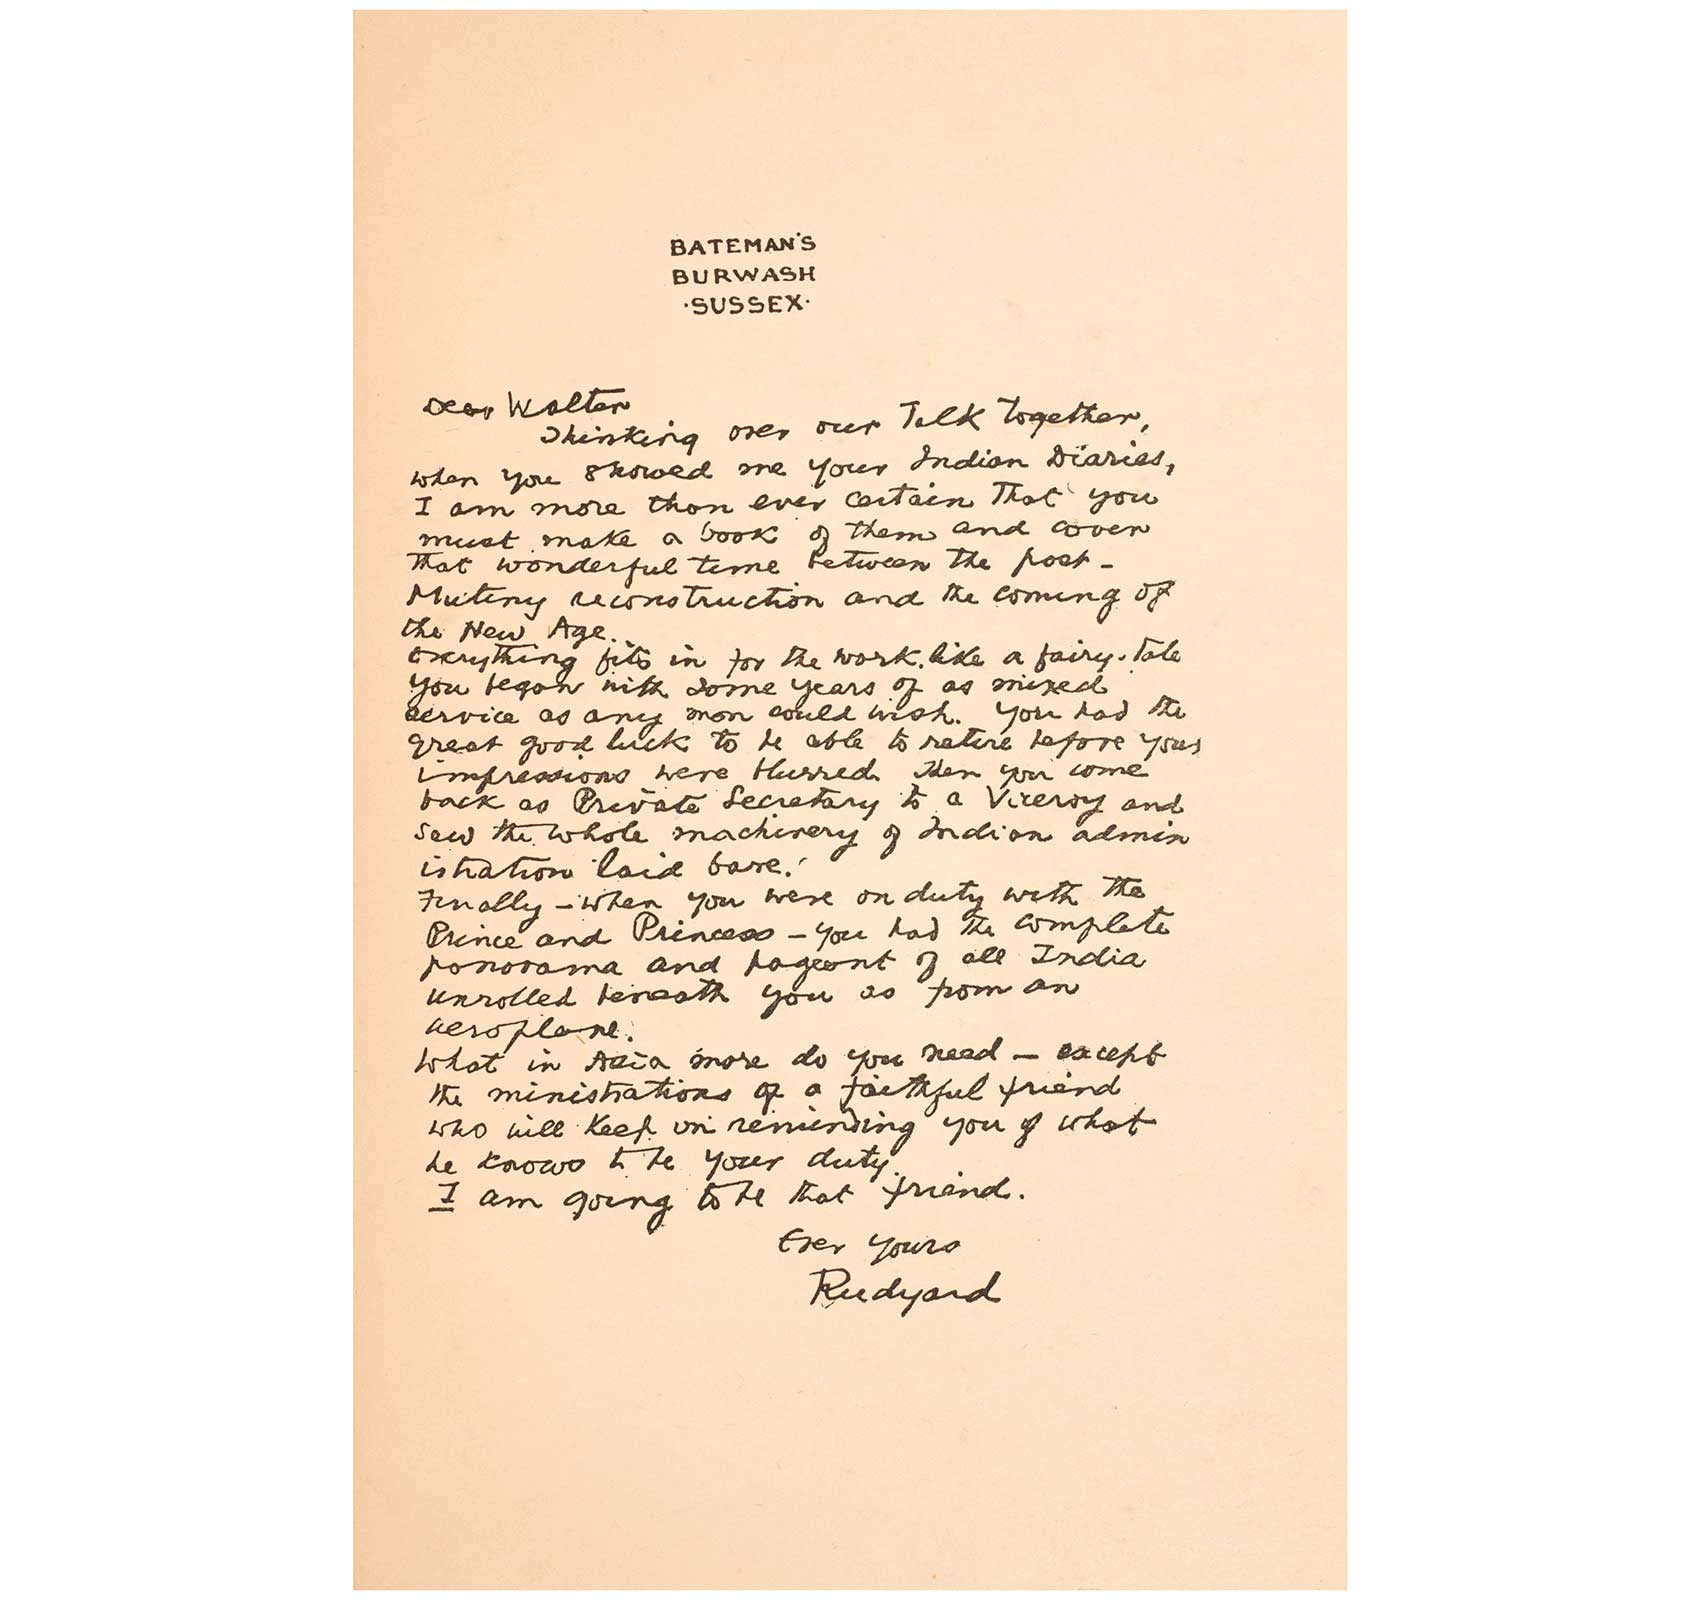 BATEMAN'S
BURWASH
·SUSSEX·
Dear Walter
Thinking over our Talk together,
when you showed me your Indian Diaries,
I am more than ever certain that you
must make a book of them and cover
that wonderful time between the post-
Mutiny reconstruction and the coming of
the New Age.
Everything fits in for the work like a fairy-tale
You began with some years of as mixed
service as any man could wish. You had the
great good luck to be able to retire before your
impressions were blurred. Then you come
back as Private Secretary to a Viceroy and
saw the whole machinery of Indian admin
istration laid bare.
Finally - when you were on duty with the
Prince and Princess - you had the complete
panorama and pageant of all India
unrolled beneath you as from an
aeroplane.
What in Asia more do you need - except
the ministrations of a faithful friend
who will keep on reminding you of what
he knows to be your duty.
I am going to be that friend.
Ever yours
Rudyard